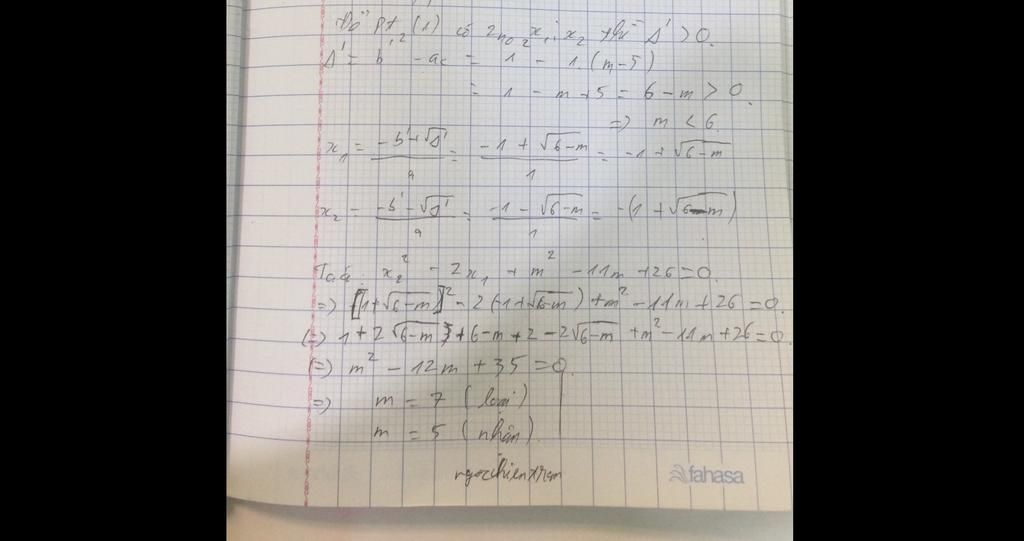 Để pt (1) có 2 no x₁; x₂ thì Δ' > 0.
Δ' = b'² - ac = 1 - 1.(m-5)
= 1 - m + 5 = 6 - m > 0.
=> m < 6.
x₁ = (-b' + √Δ')/a = (-1 + √(6-m))/1 = -1 + √(6-m)
x₂ = (-b' - √Δ')/a = (-1 - √(6-m))/1 = -(1 + √(6-m))
Ta có: x₂² - 2x₁ + m² - 11m + 26 = 0.
=> [1+√(6-m)]² - 2(-1+√(6-m)) + m² - 11m + 26 = 0.
(=) 1 + 2√(6-m) + 6 - m + 2 - 2√(6-m) + m² - 11m + 26 = 0.
(=) m² - 12m + 35 = 0.
=> m = 7 (loại)
m = 5 (nhận).
fahasa